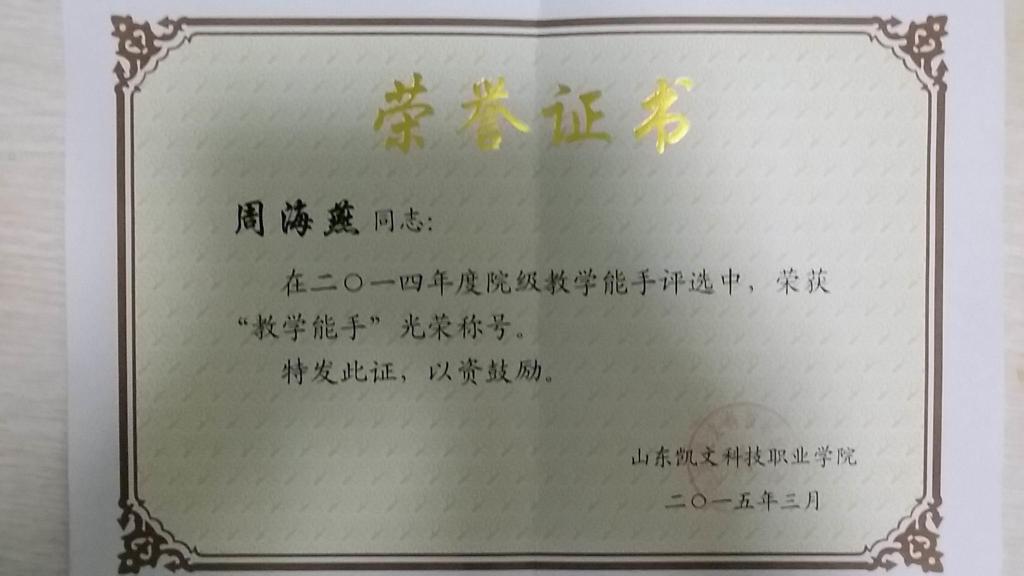 荣誉证书
周海燕 同志：
在二〇一四年度院级教学能手评选中，荣获
“教学能手”光荣称号。
特发此证，以资鼓励。
山东凯文科技职业学院
二〇一五年三月